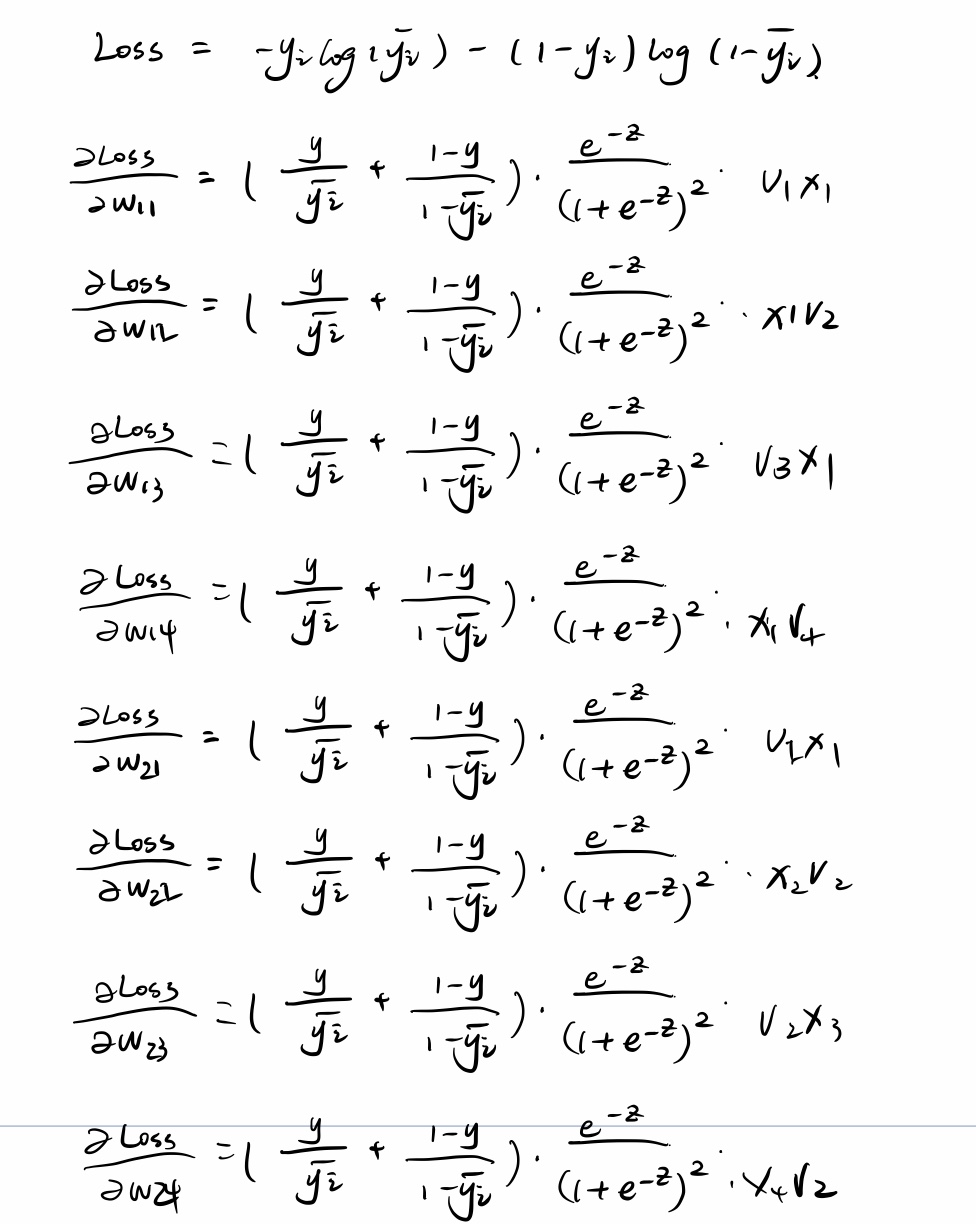 Loss = -yᵢ log(ȳᵢ) - (1-yᵢ) log(1-ȳᵢ)
∂Loss/∂w11 = (y/ȳᵢ + (1-y)/(1-ȳᵢ)) · e^(-z)/(1+e^(-z))² · v₁x₁
∂Loss/∂w12 = (y/ȳᵢ + (1-y)/(1-ȳᵢ)) · e^(-z)/(1+e^(-z))² · · x1v2
∂Loss/∂w13 = (y/ȳᵢ + (1-y)/(1-ȳᵢ)) · e^(-z)/(1+e^(-z))² · v3x1
∂Loss/∂w14 = (y/ȳᵢ + (1-y)/(1-ȳᵢ)) · e^(-z)/(1+e^(-z))² · · x₁v₄
∂Loss/∂w21 = (y/ȳᵢ + (1-y)/(1-ȳᵢ)) · e^(-z)/(1+e^(-z))² · v₂x₁
∂Loss/∂w22 = (y/ȳᵢ + (1-y)/(1-ȳᵢ)) · e^(-z)/(1+e^(-z))² · · x₂v₂
∂Loss/∂w23 = (y/ȳᵢ + (1-y)/(1-ȳᵢ)) · e^(-z)/(1+e^(-z))² · v₂x₃
∂Loss/∂w24 = (y/ȳᵢ + (1-y)/(1-ȳᵢ)) · e^(-z)/(1+e^(-z))² · · x₄v₂